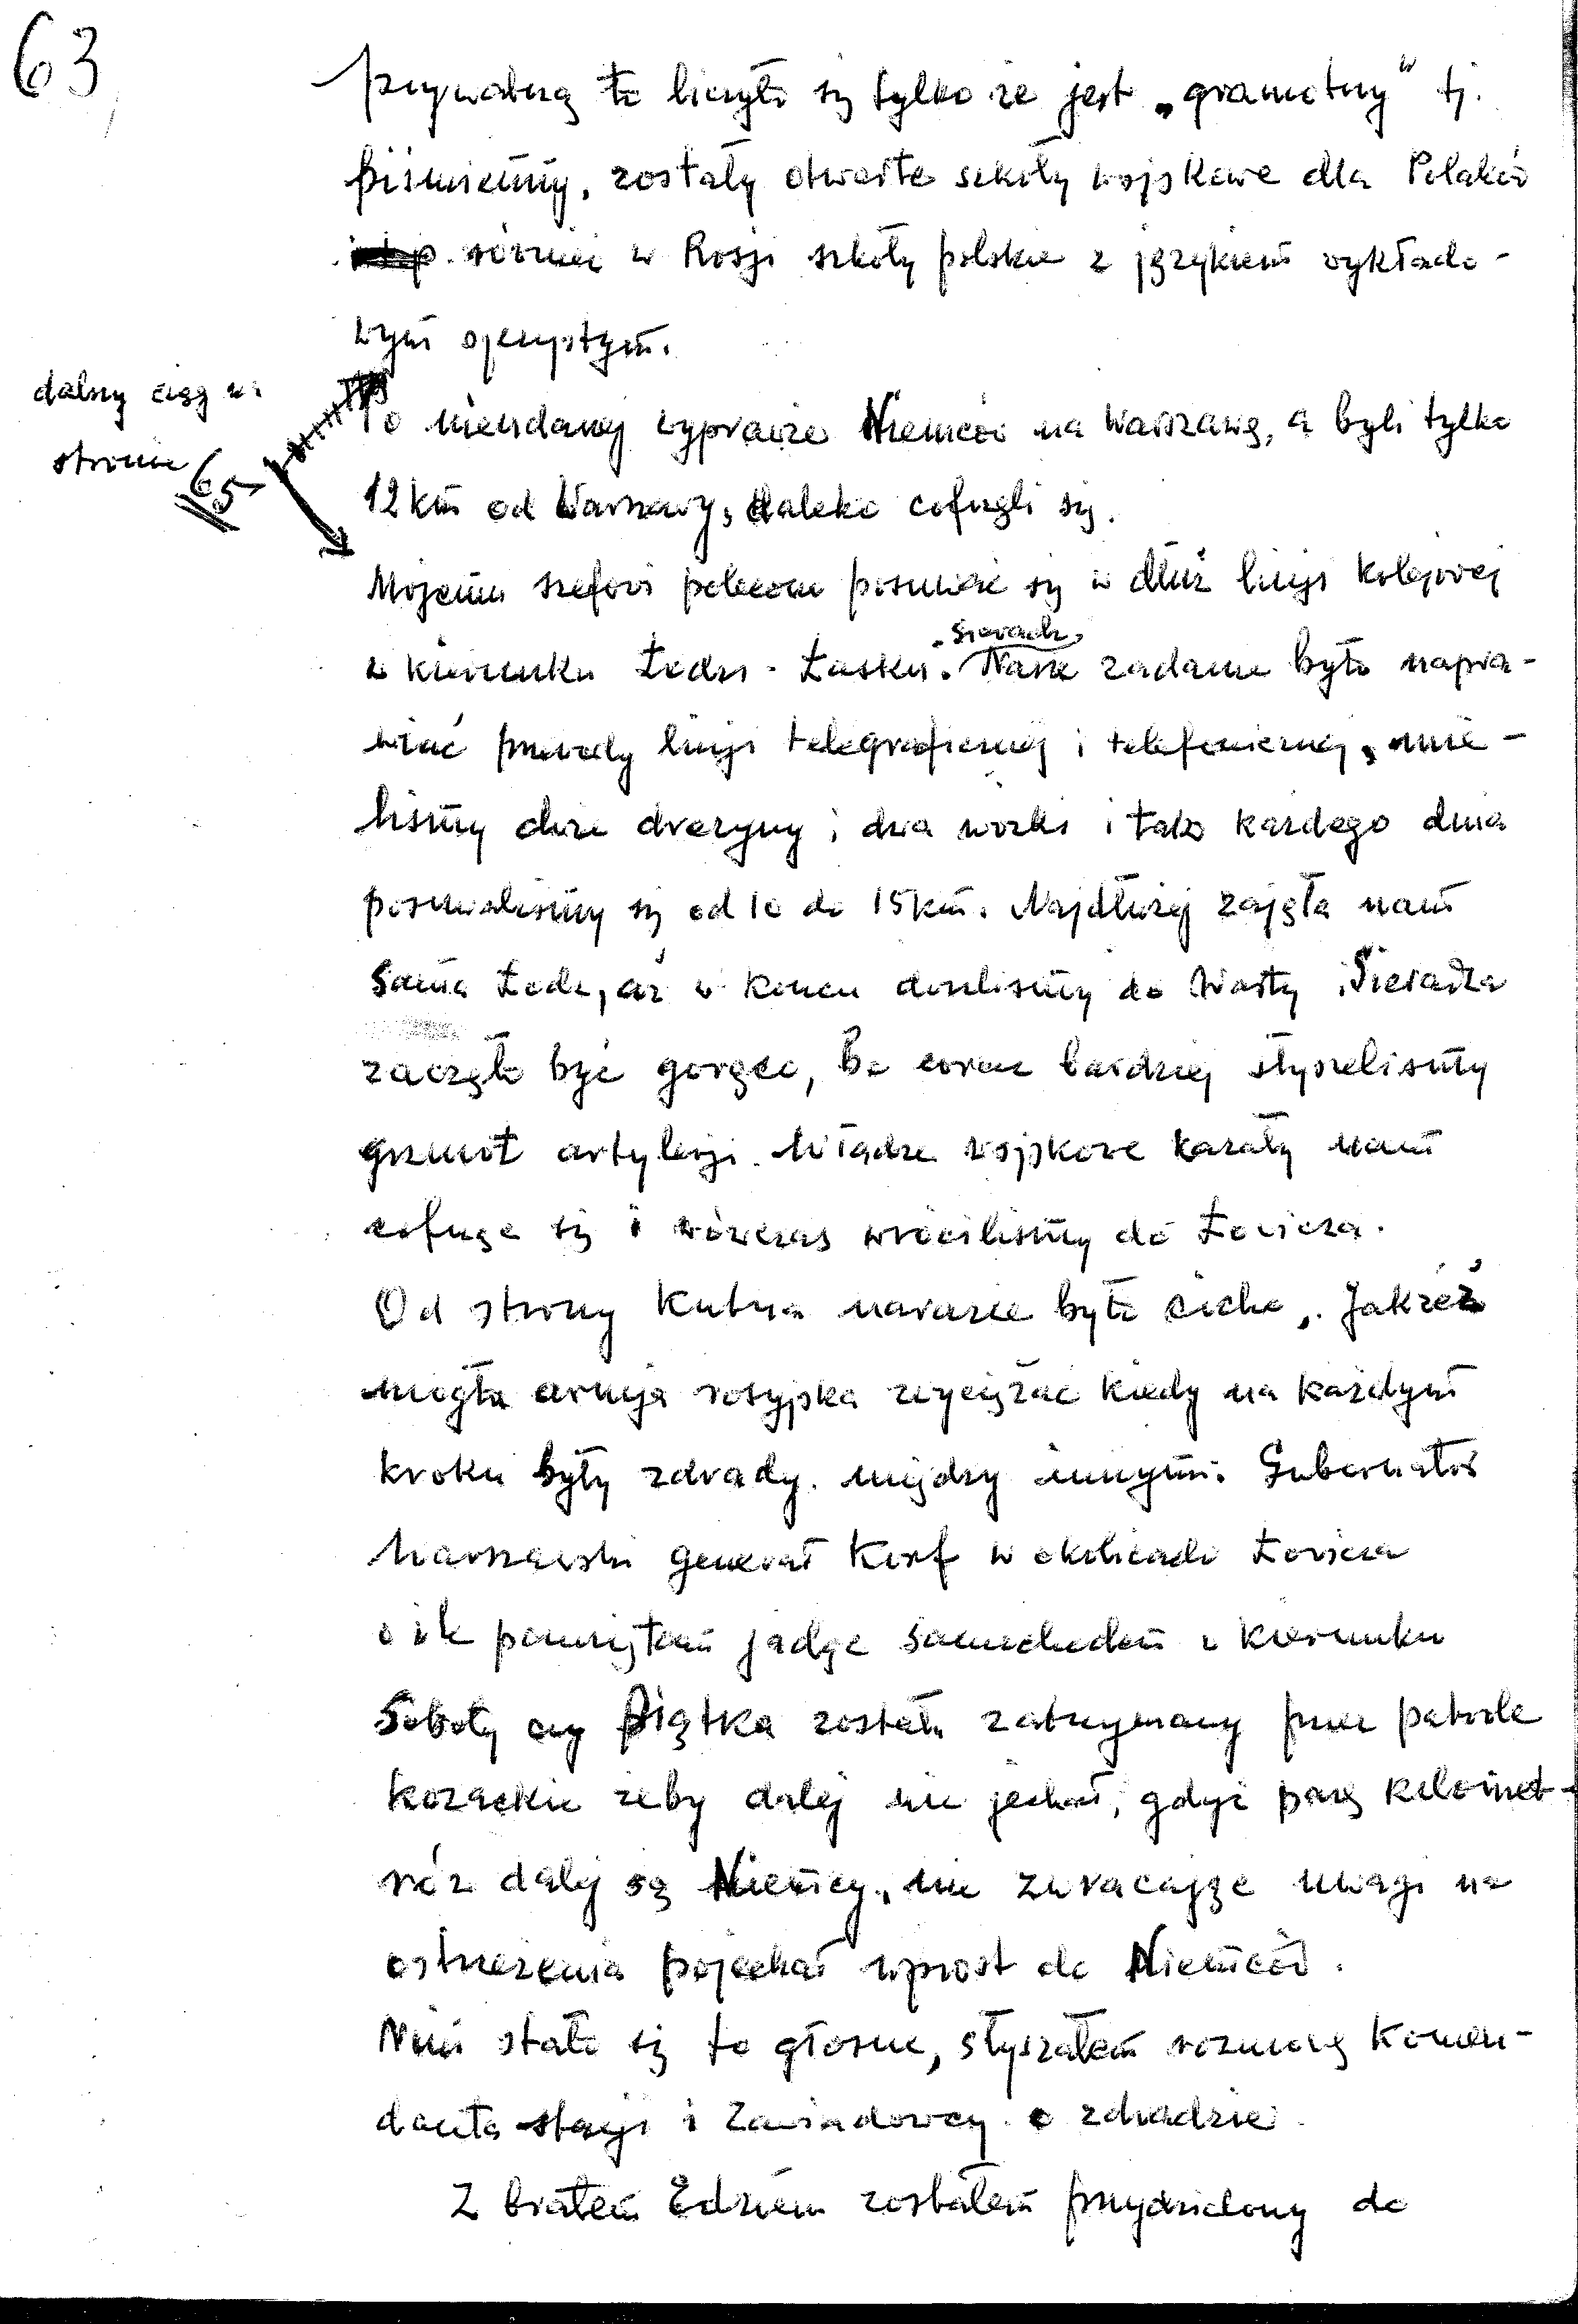 63
prywatną to liczyło się tylko że jest „gramotny" tj.
piśmienny, zostały otwarte szkoły wojskowe dla Polaków
również w Rosji szkoły polskie z językiem wykłado-
wym ojczystym.
dalszy ciąg na
stronie 65
Po nieudanej wyprawie Niemców na Warszawę, a byli tylko
12 km od Warszawy, daleko cofnęli się.
Mojemu szefowi polecono posuwać się w dłuż linji kolejowej
Sieradz
w kierunku Łodzi - Łasku. Nasze zadanie było napra-
wiać przewody linji telegraficznej i telefonicznej, mie-
liśmy dwie drezyny i dwa wózki i tak każdego dnia
posuwaliśmy się od 10 do 15 km. Najdłużej zajęła nam
sama Łódź, aż w końcu doszliśmy do Warty i Sieradza
zaczęło być gorąco, bo coraz bardziej słyszeliśmy
grzmot artylerji. Władze wojskowe kazały nam
cofnąć się i wówczas wróciliśmy do Łowicza.
Od strony Kutna narazie było cicho. Jakżeż
mogła armja rosyjska zwyciężać kiedy na każdym
kroku były zdrady. między innymi: Gubernator
Warszawski generał Korf w okolicach Łowicza
o ile pamiętam jadąc samochodem w kierunku
Soboty czy Piątka został zatrzymany przez patrole
kozackie żeby dalej nie jechał, gdyż parę kilomet-
rów dalej są Niemcy, nie zwracając uwagi na
ostrzeżenia pojechał wprost do Niemców.
Nim stało się to głośne, słyszałem rozmowę komen-
danta stacji i zawiadowcy o zdradzie.
Z bratem Edziem zostałem przydzielony do